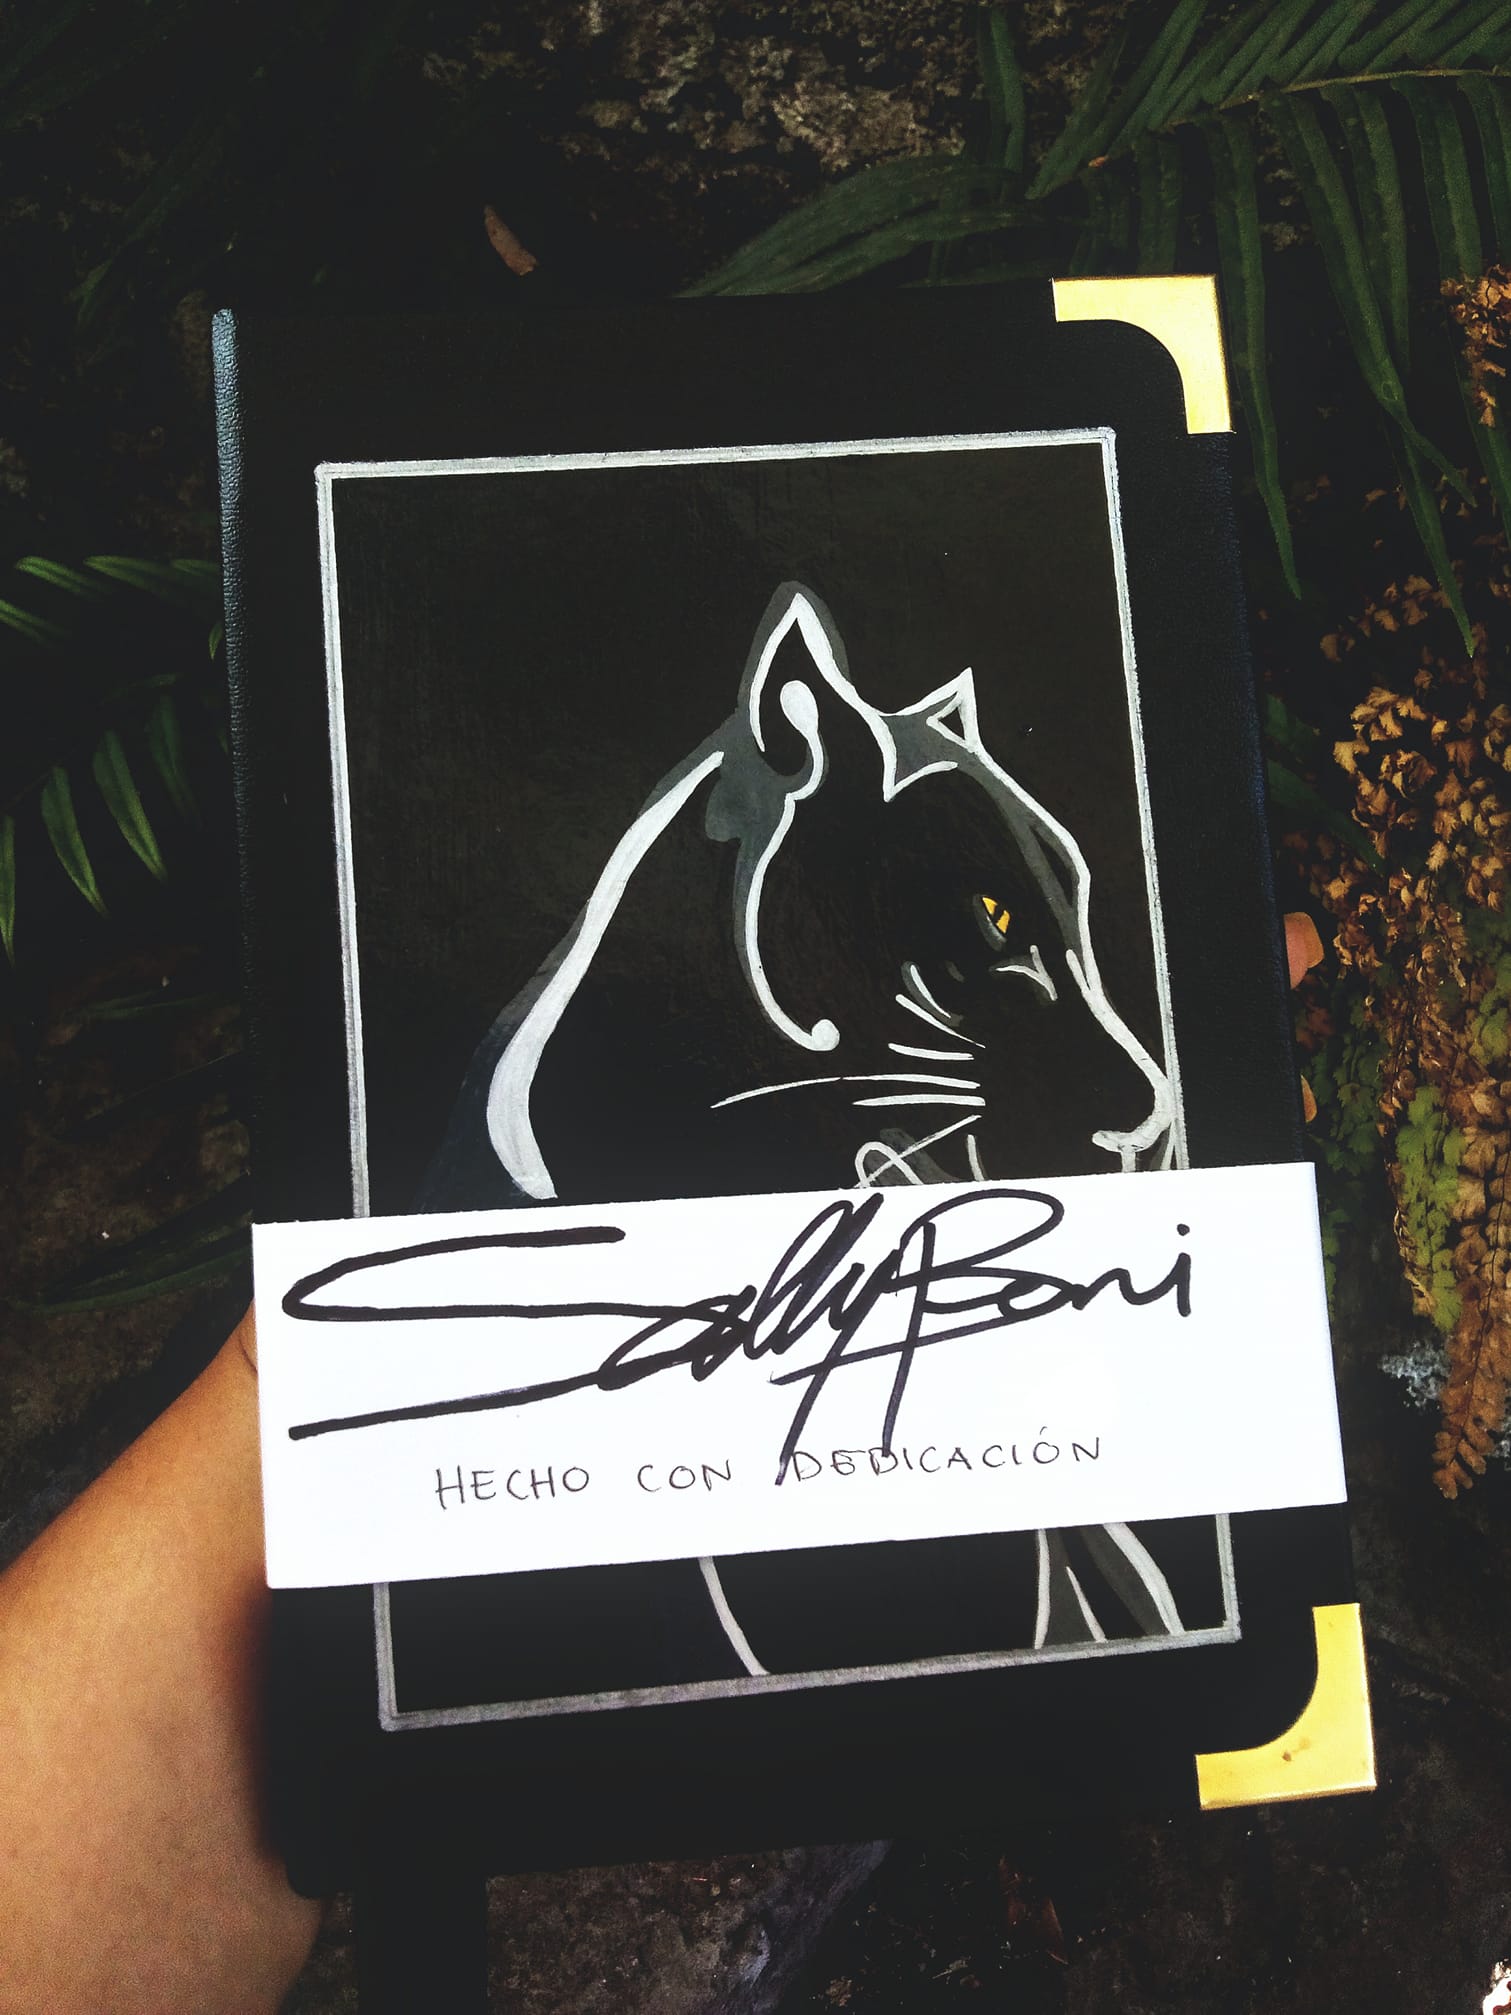 Sally Boni
HECHO CON DEDICACIÓN